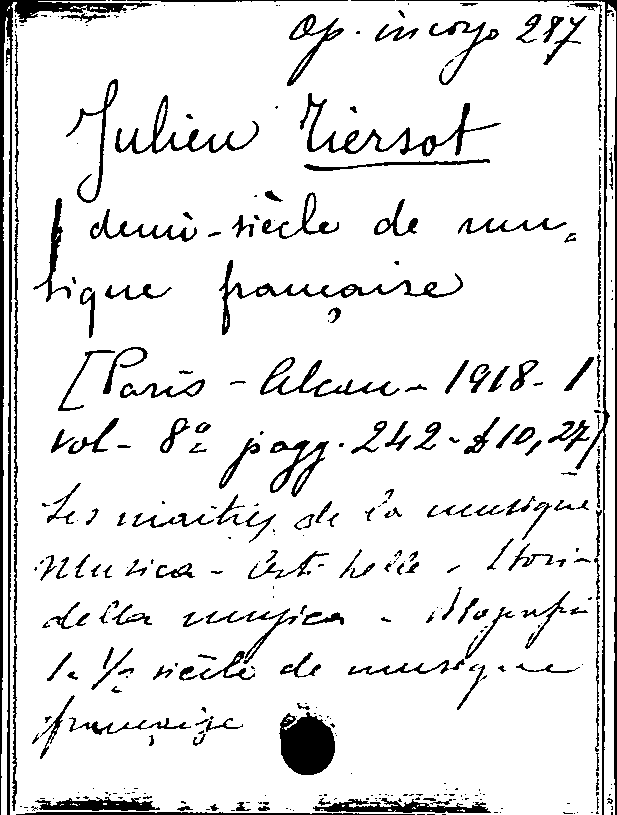 Op. in corso 287
Julien Tiersot
1 demi-siècle de mu-
sique française
[Paris - Alcan - 1918 - 1
vol - 8º pagg. 242 - £ 10,27]
Les maîtres de la musique
Musica - Arti belle - Storia
della musica - Monografie
1. 1/2 siècle de musique
française